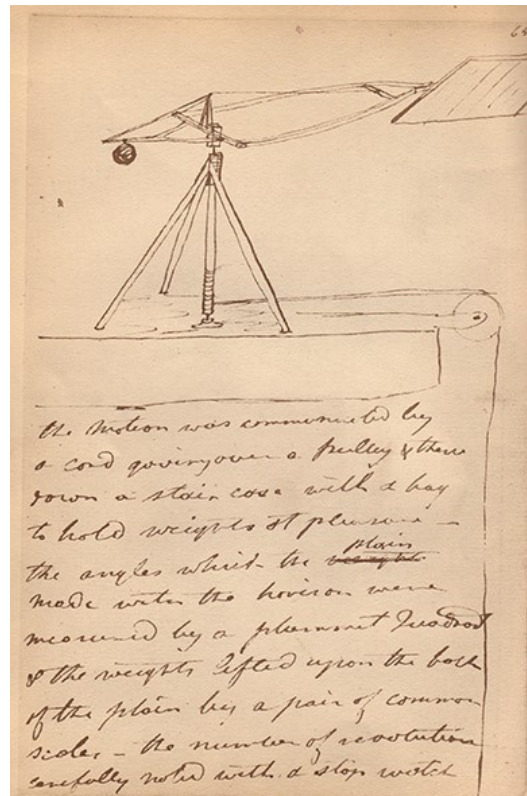 the motion was communicated by
a cord going over a pulley & thence
down a stair case with a bag
to hold weights at pleasure –
the angles which the plain
made with the horison were
measured by a plummet Quadrant
& the weights lifted upon the back
of the plain by a pair of common
scales – the number of revolutions
carefully noted with a stop watch